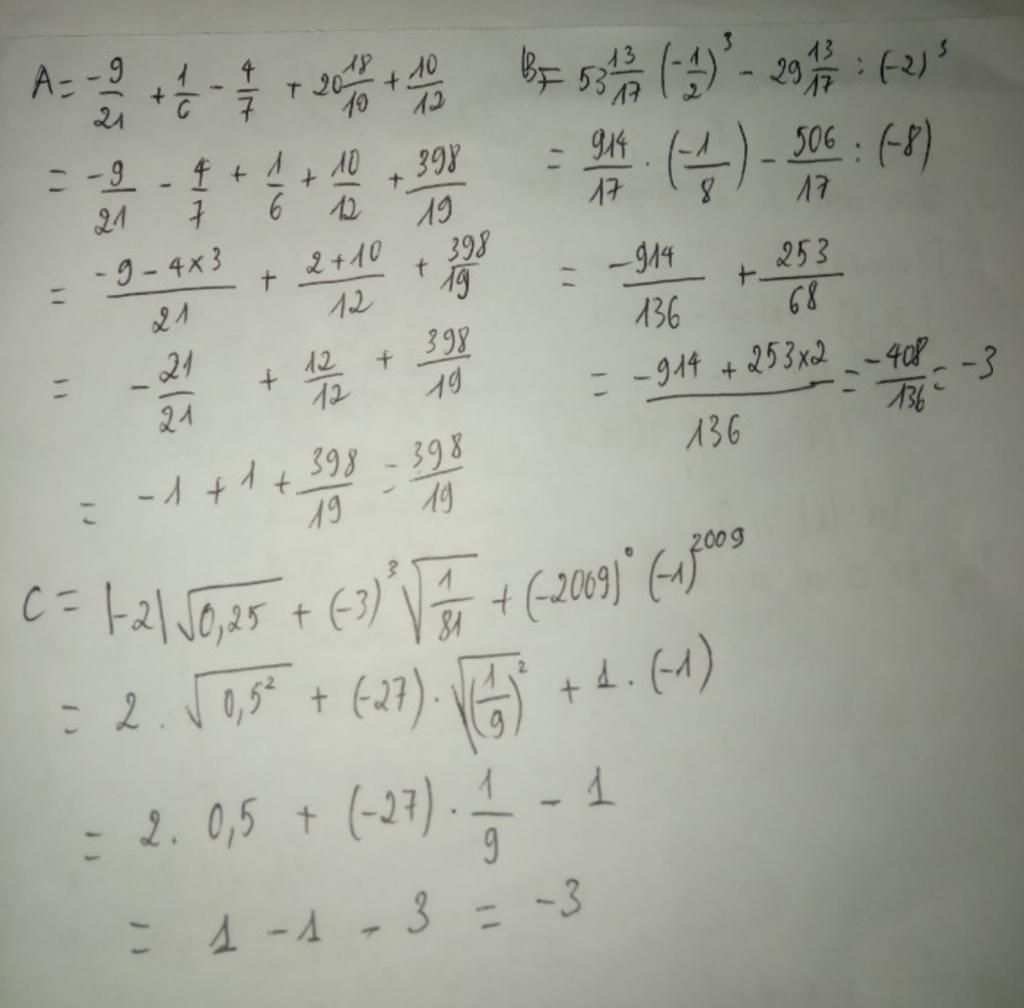 A = -9/21 + 1/6 - 4/7 + 20 18/19 + 10/12
= -9/21 - 4/7 + 1/6 + 10/12 + 398/19
= -9-4×3/21 + 2+10/12 + 398/19
= -21/21 + 12/12 + 398/19
= -1 + 1 + 398/19 = 398/19
B = 53 13/17 (-1/2)³ - 29 13/17 : (-2)³
= 914/17 . (-1/8) - 506/17 : (-8)
= -914/136 + 253/68
= -914 + 253×2/136 = -408/136 = -3
C = |-2| √0,25 + (-3)³ √1/81 + (-2009)⁰ (-1)²⁰⁰⁹
= 2 . √0,5² + (-27) . √(1/9)² + 1 . (-1)
= 2 . 0,5 + (-27) . 1/9 - 1
= 1 - 1 - 3 = -3